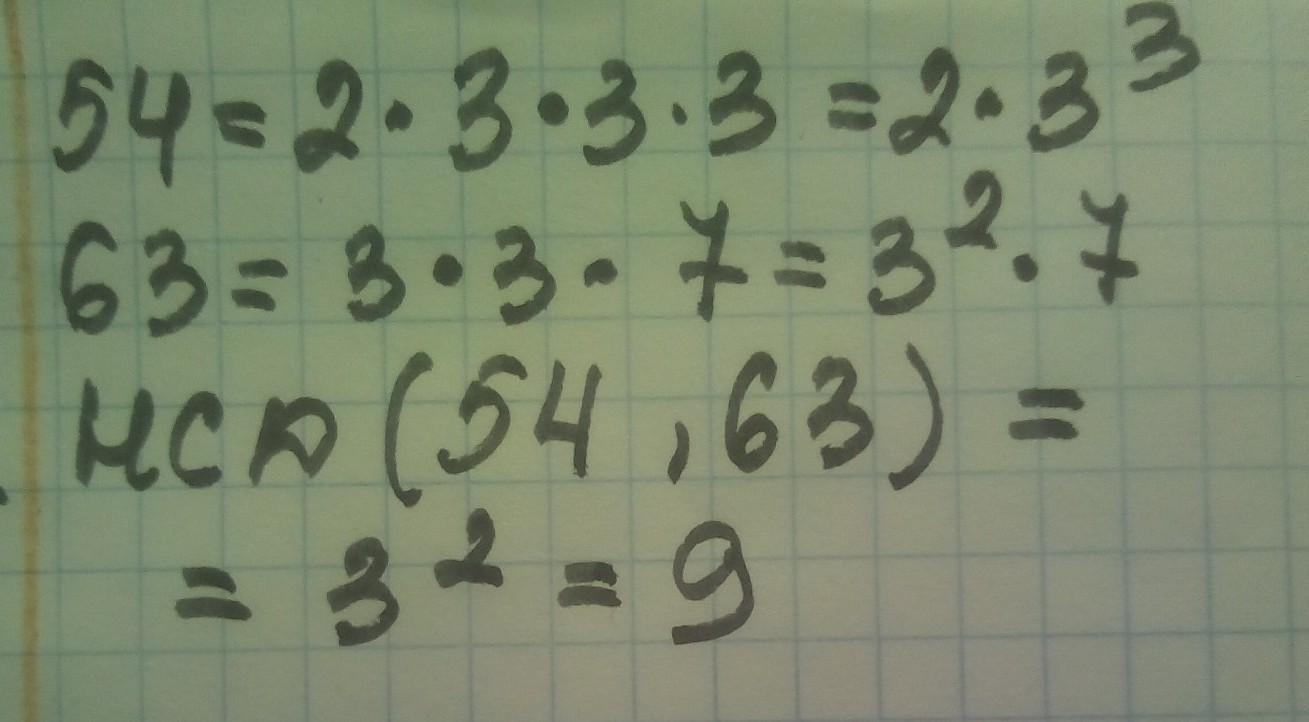 54 = 2 · 3 · 3 · 3 = 2 · 3³
63 = 3 · 3 · 7 = 3² · 7
НСД (54, 63) =
= 3² = 9